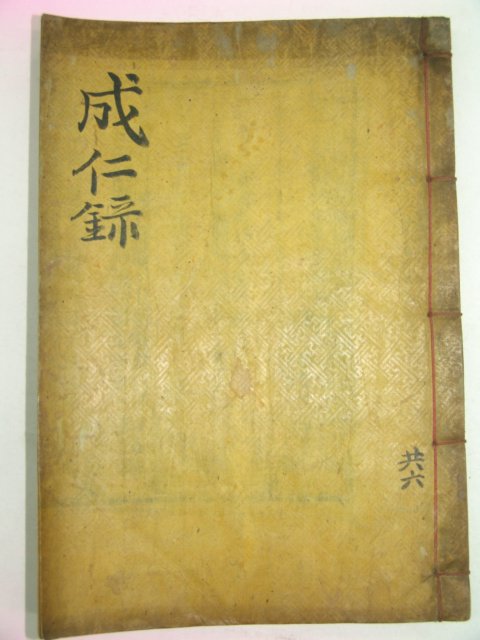 成仁録
共六